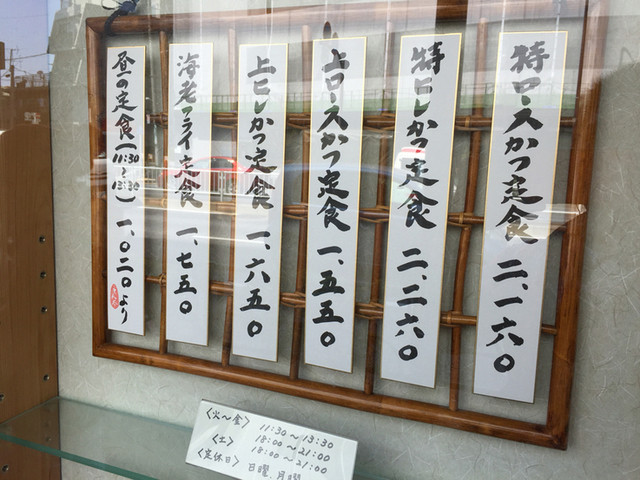 特ロースかつ定食 二、一六〇
特ヒレかつ定食 二、二六〇
上ロースかつ定食 一、五五〇
上ヒレかつ定食 一、六五〇
海老フライ定食 一、七五〇
昼の定食(11:30~13:30) 一、〇二〇より
〈火〜金〉 11:30〜13:30
18:00〜21:00
〈土〉 18:00〜21:00
〈定休日〉 日曜、月曜